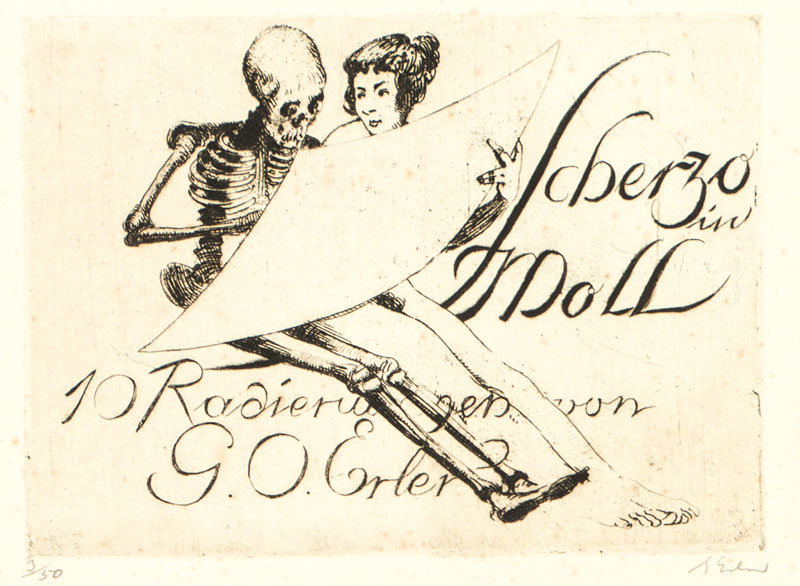 Scherzo
in
Moll
10 Radierungen von
G. O. Erler
3/50